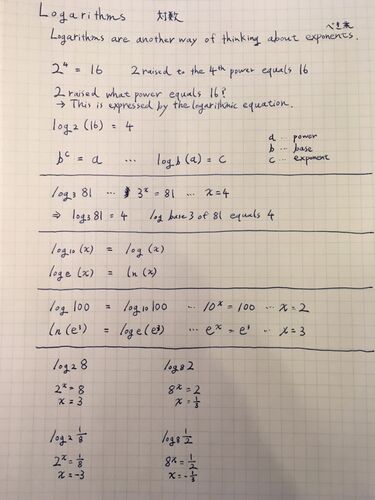 Logarithms 対数
べき乗
Logarithms are another way of thinking about exponents.
2⁴ = 16 2 raised to the 4th power equals 16
2 raised what power equals 16?
→ This is expressed by the logarithmic equation.
log₂(16) = 4
a … power
b … base
c … exponent
bᶜ = a … log b (a) = c
log₃ 81 … 3ˣ = 81 … x = 4
⇒ log₃ 81 = 4 log base 3 of 81 equals 4
log₁₀(x) = log(x)
log e (x) = ln(x)
log 100 = log₁₀ 100 … 10ˣ = 100 … x = 2
ln(e³) = log e (e³) … eˣ = e³ … x = 3
log₂ 8 log₈ 2
2ˣ = 8 8ˣ = 2
x = 3 x = 1/3
log₂ 1/8 log₈ 1/2
2ˣ = 1/8 8ˣ = 1/2
x = -3 x = -1/3